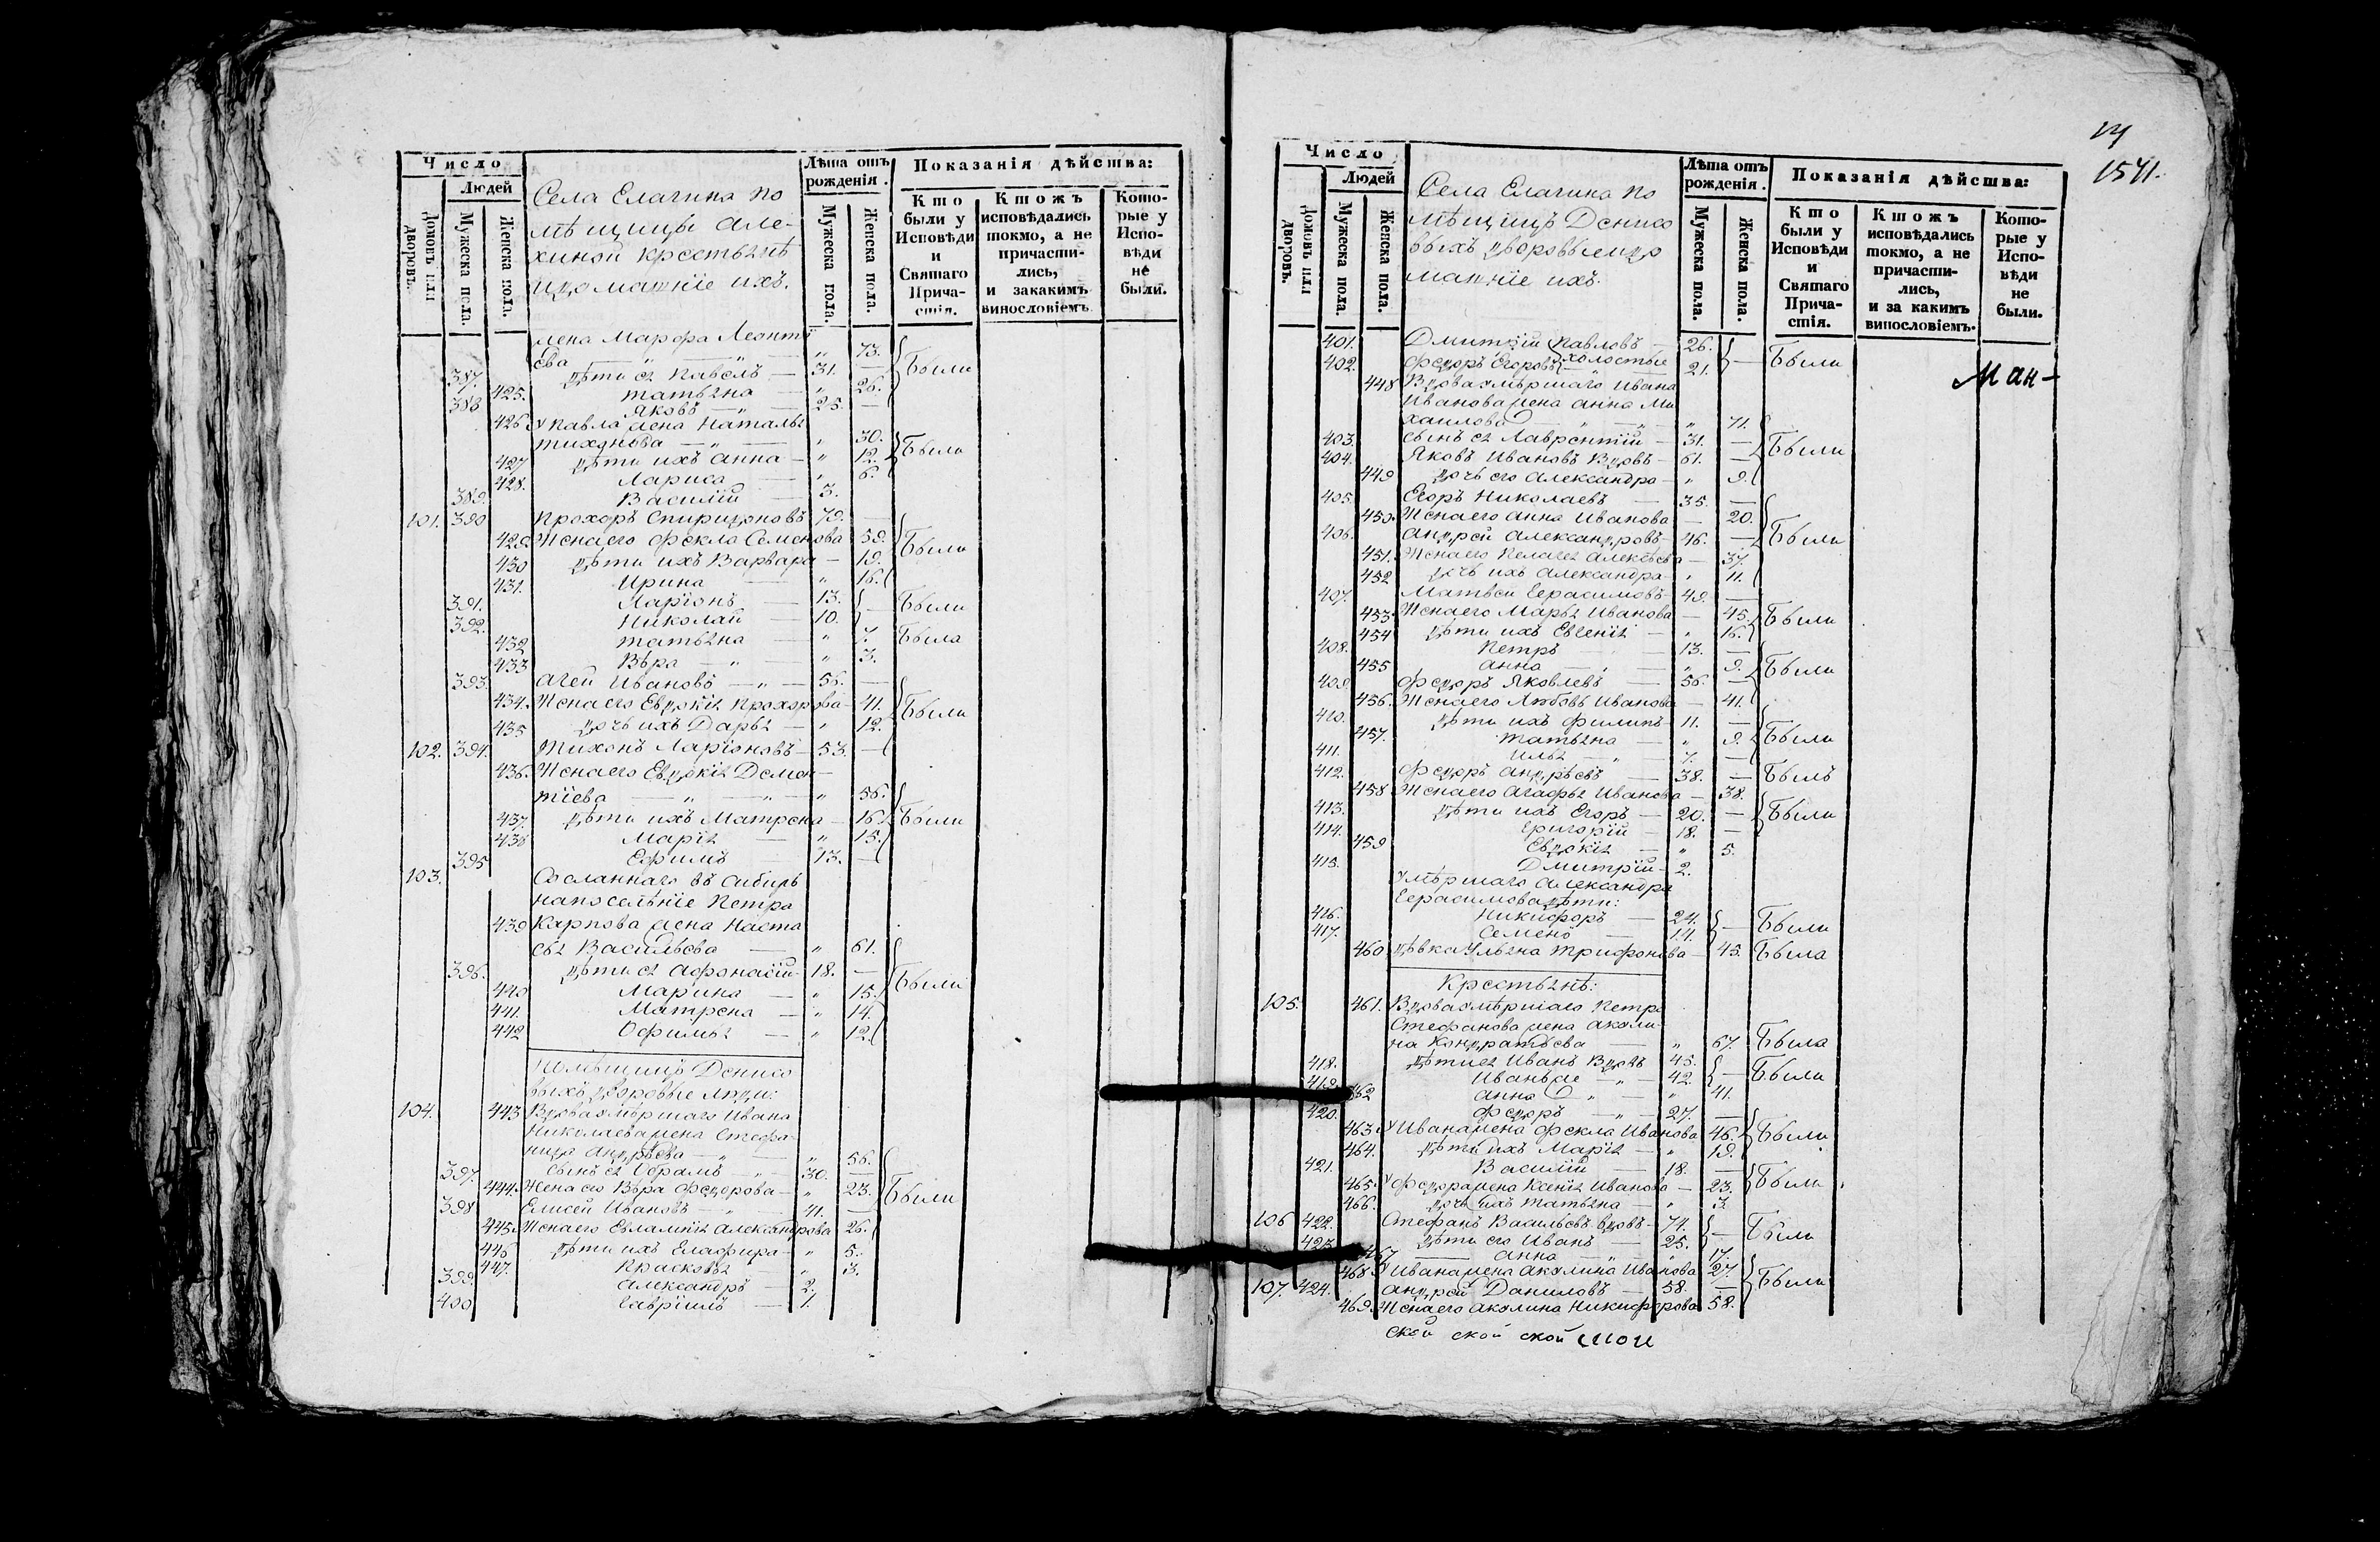 Число
Людей
Домовъ или дворовъ.
Мужеска пола.
Женска пола.
Села Елагина по
мѣщицы Але-
хиной крестьянѣ
идоматніе ихъ.
Лѣта отъ рожденія.
Мужеска пола.
Женска пола.
Показанія дѣйства:
Кто были у Исповѣди и Святаго Причастія.
Ктожъ исповѣдались токмо, а не причастились, и закакимъ винословіемъ
Которые у Исповѣди не были.
жена Марфа Леонть
ева — " — " — " 73. Были
387. дѣти ея Павелъ — 31. —
425. Татьяна — " 26.
388 Яковъ — " — 25. —
426 У Павла жена Наталья
Тихонова — " — " 30. Были
427 дѣти ихъ Анна — " 12.
428. Лариса — " 6.
389. Василій — 3.
101. 390 Прохоръ Спиридоновъ 79. —
429. Жена его Фекла Семенова 59. Были
430 дѣти ихъ Варвара — 19.
431. Ирина — " 16.
391. Ларіонъ — 13. — Были
392. Николай — 10.
432 Татьяна — " 7. Была
433 Вѣра — " — " 3.
393. Агей Ивановъ — " — 56. —
434. Жена его Евдокія Прохорова — 41. Были
435 дочь ихъ Дарья — " 12.
102. 394. Тихонъ Ларіоновъ — 53. —
436. Жена его Евдокія Демен-
тіева — " — " — " 56.
437. дѣти ихъ Матрена — 16. Были
438 Марія — " 15.
395 Ефимъ — 13. —
103. Сосланнаго въ Сибирь
напоселѣніе Петра
439 Карпова жена Наста
сья Васильева — " 61.
396. дѣти ея Афонасій 18. — Были
440 Марина — " 15.
441. Матрена — " 14.
442 Офимья — " 12.
Помѣщицъ Денисо
выхъ дворовые люди:
104. 443 Вдова умѣршаго Ивана
Николаева жена Стефа-
нида Андрѣева — " — " 56.
397. сынъ ея Абрамъ — " — 30.
444. Жена его Вѣра Федорова — " 23. Были
398 Елисей Ивановъ — " — 41. —
445. Жена его Евлампія Александрова 26.
446 дѣти ихъ Глафира — " 5.
447. Прасковья — " 3.
399. Александръ — 2.
400 Гавріилъ — 1.
14
1541.
Число
Людей
Домовъ или дворовъ.
Мужеска пола.
Женска пола.
Села Елагина по
мѣщицъ Денисо
выхъ дворовые и до
матніе ихъ.
Лѣта отъ рожденія.
Мужеска пола.
Женска пола.
Показанія дѣйства:
Кто были у Исповѣди и Святаго Причастія.
Ктожъ исповѣдались токмо, а не причастились, и за какимъ винословіемъ.
Которые у Исповѣди не были.
401. Дмитрій Павловъ — 26. — Были
402. Федоръ Егоровъ холостые 21.
Ман-
448 Вдова умѣршаго Ивана
Иванова жена Анна Ми
хаилова — " — " — " 71.
403. сынъ ея Лаврентій — 31. — Были
404. Яковъ Ивановъ Вдовъ — 61. —
449 дочь его Александра — " 9.
405. Егоръ Николаевъ — 35. —
450. Жена его Анна Иванова — 20.
406. Андрей Александровъ — 46. — Были
451. Жена его Пелагея Алексѣева — 37.
452 дочь ихъ Александра — " 11.
407. Матвей Герасимовъ — 49. —
453. Жена его Марья Иванова — 45. Были
454 дѣти ихъ Евгенія — " 16.
408. Петръ — 13. —
455 Анна — " — " 9. Были
409. Федоръ Яковлевъ — 56. —
456. Жена его Любовь Иванова — 41.
410. дѣти ихъ Филипъ — 11. —
457. Татьяна — " 9. Были
411. Илья — " — 7. —
412. Федоръ Андрѣевъ — 38. — Былъ
458 Жена его Агафья Иванова — 38.
413. дѣти ихъ Егоръ — 20. — Были
414. Григорій — 18. —
459 Евдокія — " 5.
415. Дмитрій — 2.
Умѣршаго Александра
Герасимова дѣти:
416. Никифоръ — 24. — Были
417. Семенъ — 14.
460 дѣвка Ульяна Трифонова — 45. Была
Крестьянѣ:
105. 461. Вдова умѣршаго Петра
Стефанова жена Акули-
на Кондратьева — " 67. Была
418. дѣти ея Иванъ Вдовъ 45. — Были
419. Иванъ же — " — 42.
462 Анна — " — " 41.
420. Федоръ — " — 27. —
463. У Ивана жена Фекла Иванова 46. Были
464. дѣти ихъ Марія — " 19.
421. Василій — 18. —
465. У Федора жена Ксенія Иванова — 23. Были
466. дочь ихъ Татьяна — " 3.
106 422. Стефанъ Васильевъ вдовъ — 74. — Были
423. дѣти его Иванъ — 25.
467 Анна — " — " 17.
468 У Ивана жена Акулина Иванова 27. Были
107. 424. Андрей Даниловъ — 58. —
469. Жена его Акулина Никифорова 58.
ской ской ской